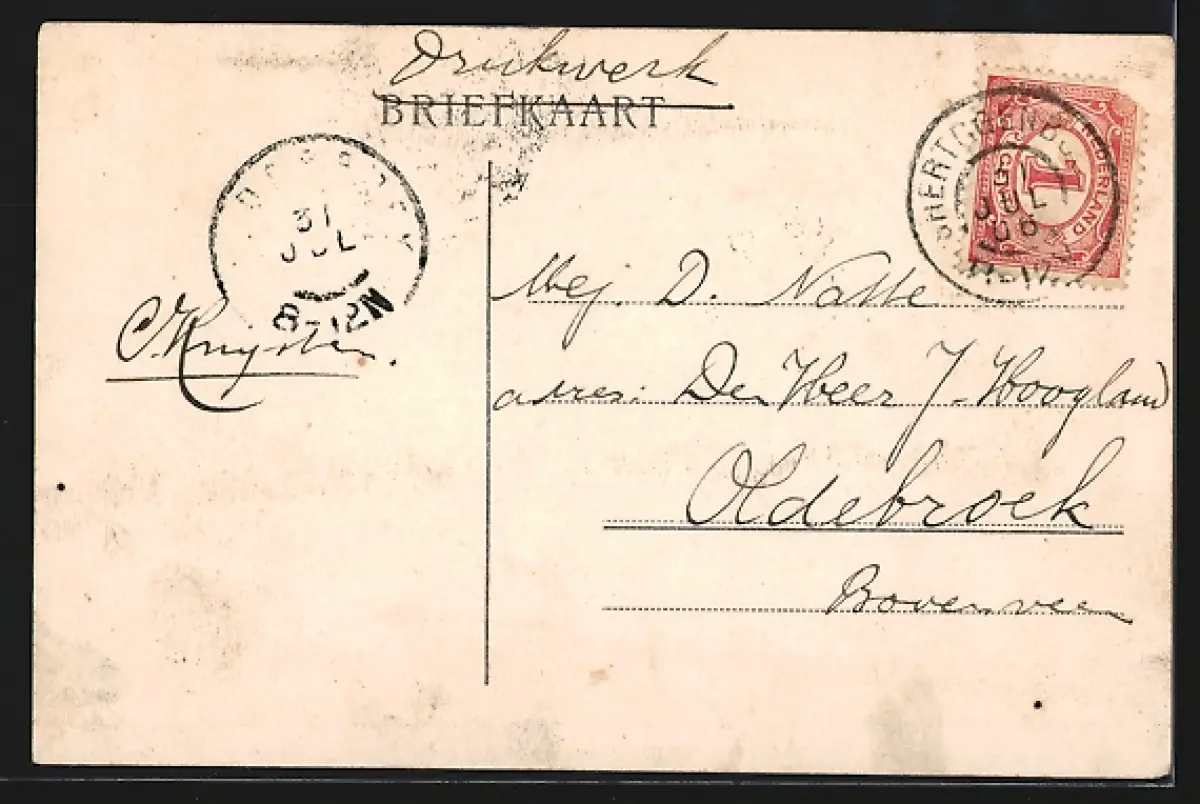 Drukwerk
BRIEFKAART
31
JUL
8-12N
SHERTOGENB
JUL
06
NEDERLAND
1
Mej. D. Natte
adres: Den Heer J. Hoogland
Oldebroek
Bovenveen